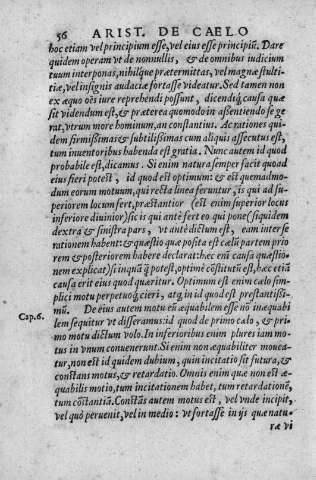 56 ARIST. DE CAELO
hoc etiam vel principium esse, vel eius esse principiũ. Dare
quidem operam vt de nonnullis, & de omnibus iudicium
tuum interponas, nihilque prætermittas, vel magnæ stulti-
tiæ, vel insignis audaciæ fortasse videatur. Sed tamen non
ex æquo oẽs iure reprehendi possunt, dicendiq́; causa quæ
sit videndum est, & præterea quomodo in assentiendo se ge
rat, vtrum more hominum, an constantius. Ac rationes qui-
dem firmissimas & subtilissimas cum aliquis assecutus est,
tum inuentoribus habenda est gratia. Nunc autem id quod
probabile est, dicamus. Si enim natura semper facit quod ex
eius fieri potest, id quod est optimum: & est quemadmo-
dum eorum motuum, qui recta linea feruntur, is qui ad su-
periorem locum fert, præstantior (est enim superior locus
inferiore diuinior) sic is qui antè fert eo qui pone (siquidem
dextra & sinistra pars, vt antè dictum est, eam inter se
rationem habent: & quæstio quæ posita est cæli partem prio
rem & posteriorem habere declarat: hæc enĩ causa quæstio-
nem explicat) si inquã q̃ potest, optimè cõstitutũ est, hæc etiã
causa erit eius quod quæritur. Optimum est enim cælo sim-
plici motu perpetuoq́; cieri, atq́; in id quod est præstantissi-
mũ. De eius autem motu eũ æquabilem esse nõ inæquabi
Cap. 6.
lem sequitur vt disseramus: id quod de primo cælo, & pri-
mo motu dictum volo. In inferioribus enim plures iam mo-
tus in vnum conuenerunt. Si enim non æquabiliter mouea-
tur, non est id quidem dubium, quin incitatio sit futura, &
constans motus, & retardatio. Omnis enim quæ non est æ-
quabilis motio, tum incitationem habet, tum retardationẽ,
tum cõstantiã. Constãs autem motus est, vel vnde incipit,
vel quò peruenit, vel in medio: vt fortasse in ijs quæ natu-
ræ vi